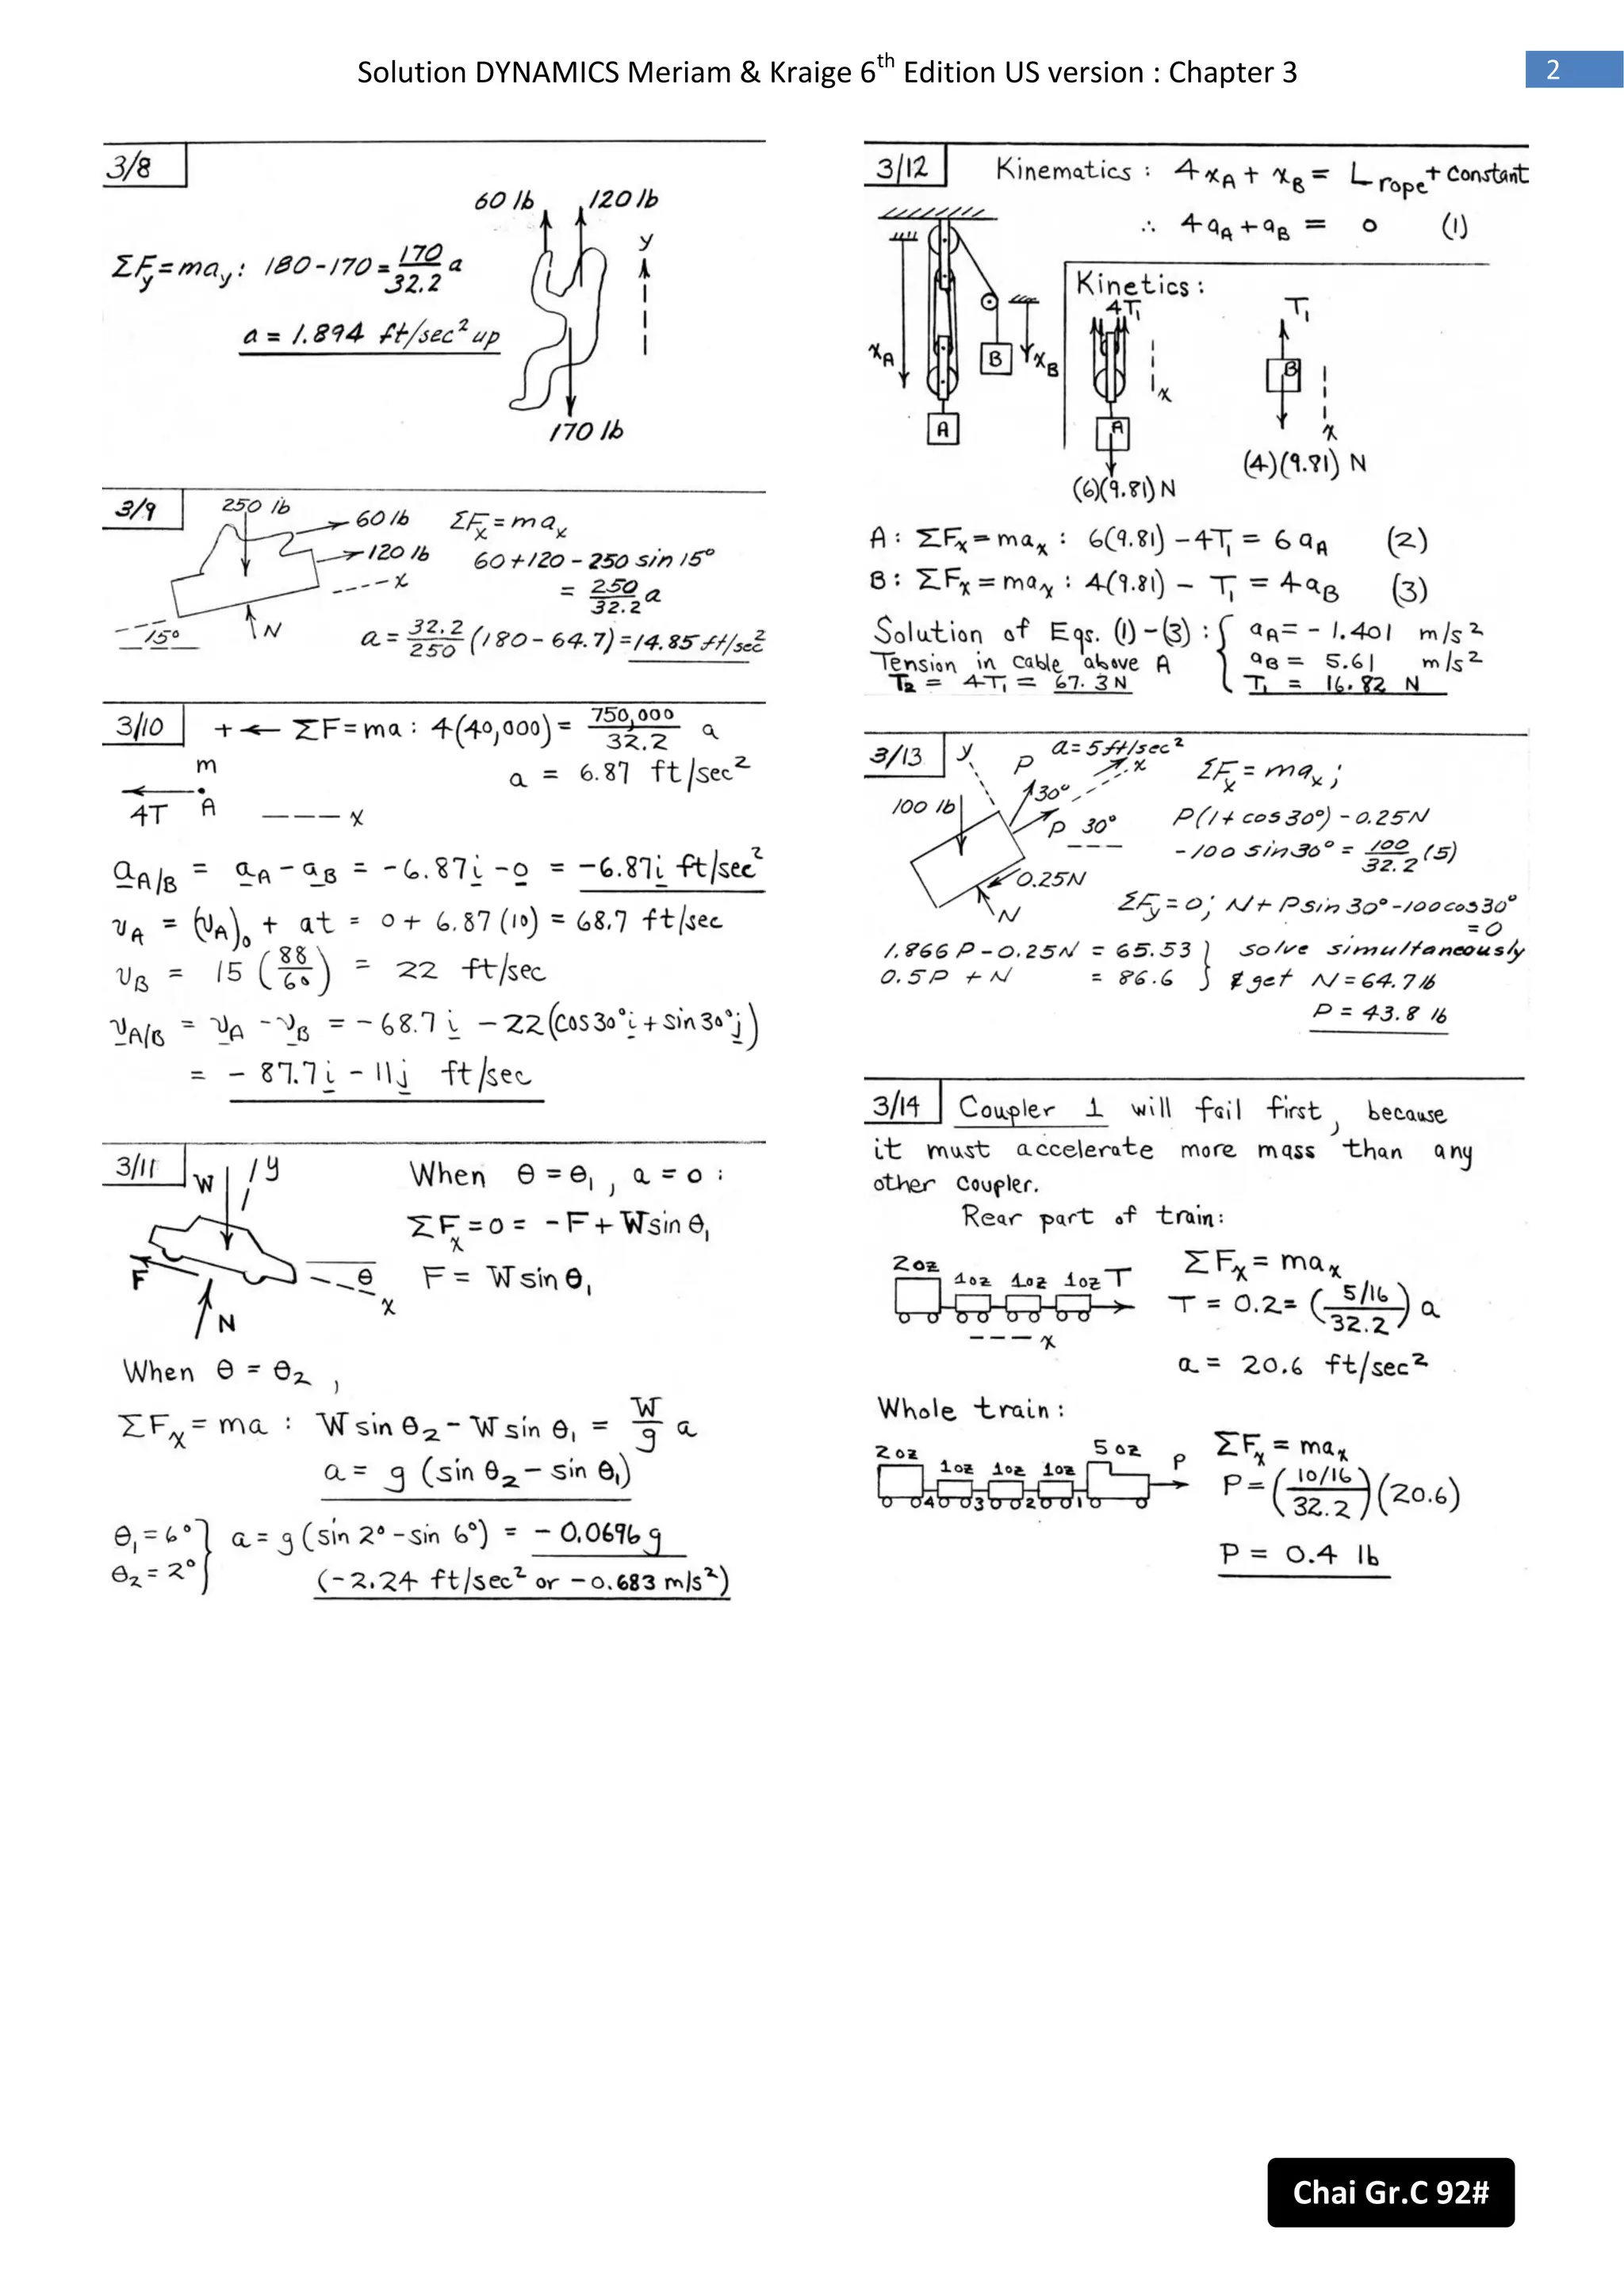 Solution DYNAMICS Meriam & Kraige 6th Edition US version : Chapter 3
2
3/8
60 lb 120 lb
y
ΣFy = may: 180-170 = 170/32.2 a
a = 1.894 ft/sec² up
170 lb
3/9
250 lb
60 lb
120 lb
x
15°
N
ΣFx = max
60+120-250 sin 15°
= 250/32.2 a
a = 32.2/250 (180-64.7) = 14.85 ft/sec²
3/10
+← ΣF=ma: 4(40,000) = 750,000/32.2 a
m
a = 6.87 ft/sec²
4T A x
aA/B = aA - aB = -6.87i - 0 = -6.87i ft/sec²
vA = (vA)0 + at = 0 + 6.87(10) = 68.7 ft/sec
vB = 15 (88/60) = 22 ft/sec
vA/B = vA - vB = -68.7i - 22(cos30°i + sin30°j)
= -87.7i - 11j ft/sec
3/11
W y
F
N
θ
x
When θ = θ1, a = 0 :
ΣFx = 0 = -F + W sin θ1
F = W sin θ1
When θ = θ2,
ΣFx = ma : W sin θ2 - W sin θ1 = W/g a
a = g (sin θ2 - sin θ1)
θ1 = 6°
θ2 = 2°
} a = g (sin 2° - sin 6°) = -0.0696g
(-2.24 ft/sec² or -0.683 m/s²)
3/12
Kinematics : 4xA + xB = Lrope + constant
∴ 4aA + aB = 0 (1)
xA
B
xB
A
Kinetics :
4T1
x
A
(6)(9.81) N
T1
B
x
(4)(9.81) N
A: ΣFx = max : 6(9.81) - 4T1 = 6aA (2)
B: ΣFx = max : 4(9.81) - T1 = 4aB (3)
Solution of Eqs. (1)-(3) : { aA = -1.401 m/s²
Tension in cable above A aB = 5.61 m/s²
T2 = 4T1 = 67.3 N T1 = 16.82 N
3/13
y
P
a = 5 ft/sec²
x
30°
100 lb
P 30°
0.25N
N
ΣFx = max;
P(1+cos30°) - 0.25N
-100 sin30° = 100/32.2 (5)
ΣFy = 0; N + P sin30° - 100cos30°
= 0
1.866P - 0.25N = 65.53 } solve simultaneously
0.5P + N = 86.6 } & get N = 64.7 lb
P = 43.8 lb
3/14
Coupler 1 will fail first, because
it must accelerate more mass than any
other coupler.
Rear part of train:
2oz
1oz 1oz 1oz T
x
ΣFx = max
T = 0.2 = (5/16/32.2) a
a = 20.6 ft/sec²
Whole train:
2oz
1oz 1oz 1oz
5 oz
P
4 3 2 1
ΣFx = max
P = (10/16/32.2)(20.6)
P = 0.4 lb
Chai Gr.C 92#